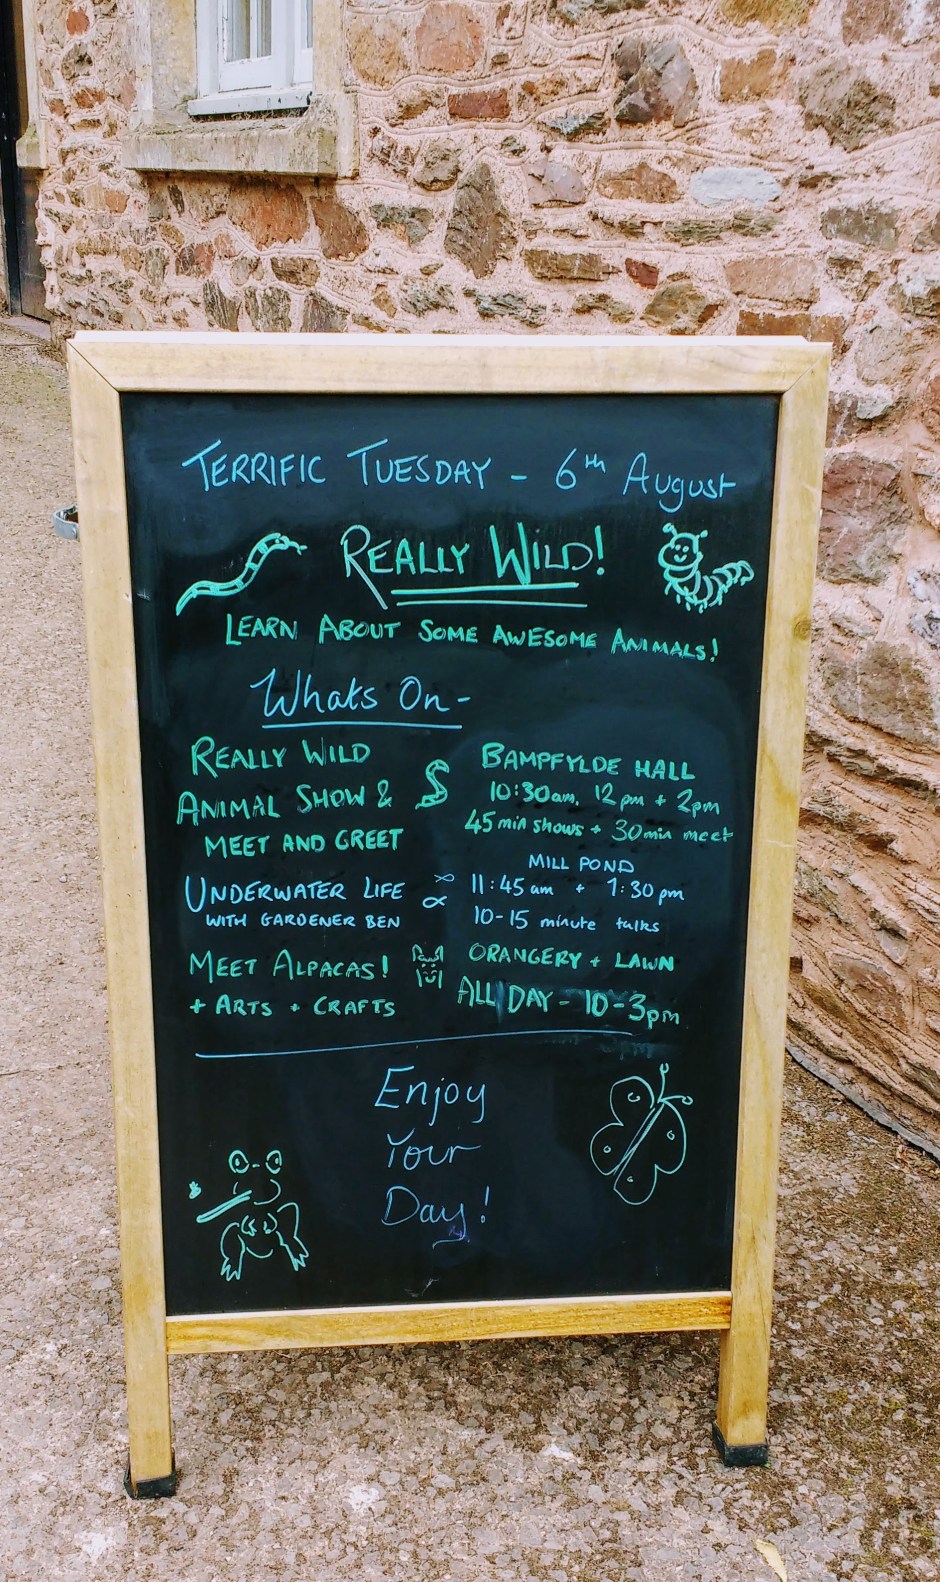 TERRIFIC TUESDAY - 6th August
REALLY WILD!
LEARN ABOUT SOME AWESOME ANIMALS!
Whats On -
REALLY WILD
ANIMAL SHOW &
MEET AND GREET
BAMPFYLDE HALL
10:30am, 12pm + 2pm
45 min shows + 30 min meet
UNDERWATER LIFE
WITH GARDENER BEN
MILL POND
11:45 am + 1:30 pm
10-15 minute talks
MEET ALPACAS!
+ ARTS + CRAFTS
ORANGERY + LAWN
ALL DAY - 10-3pm
Enjoy
Your
Day!